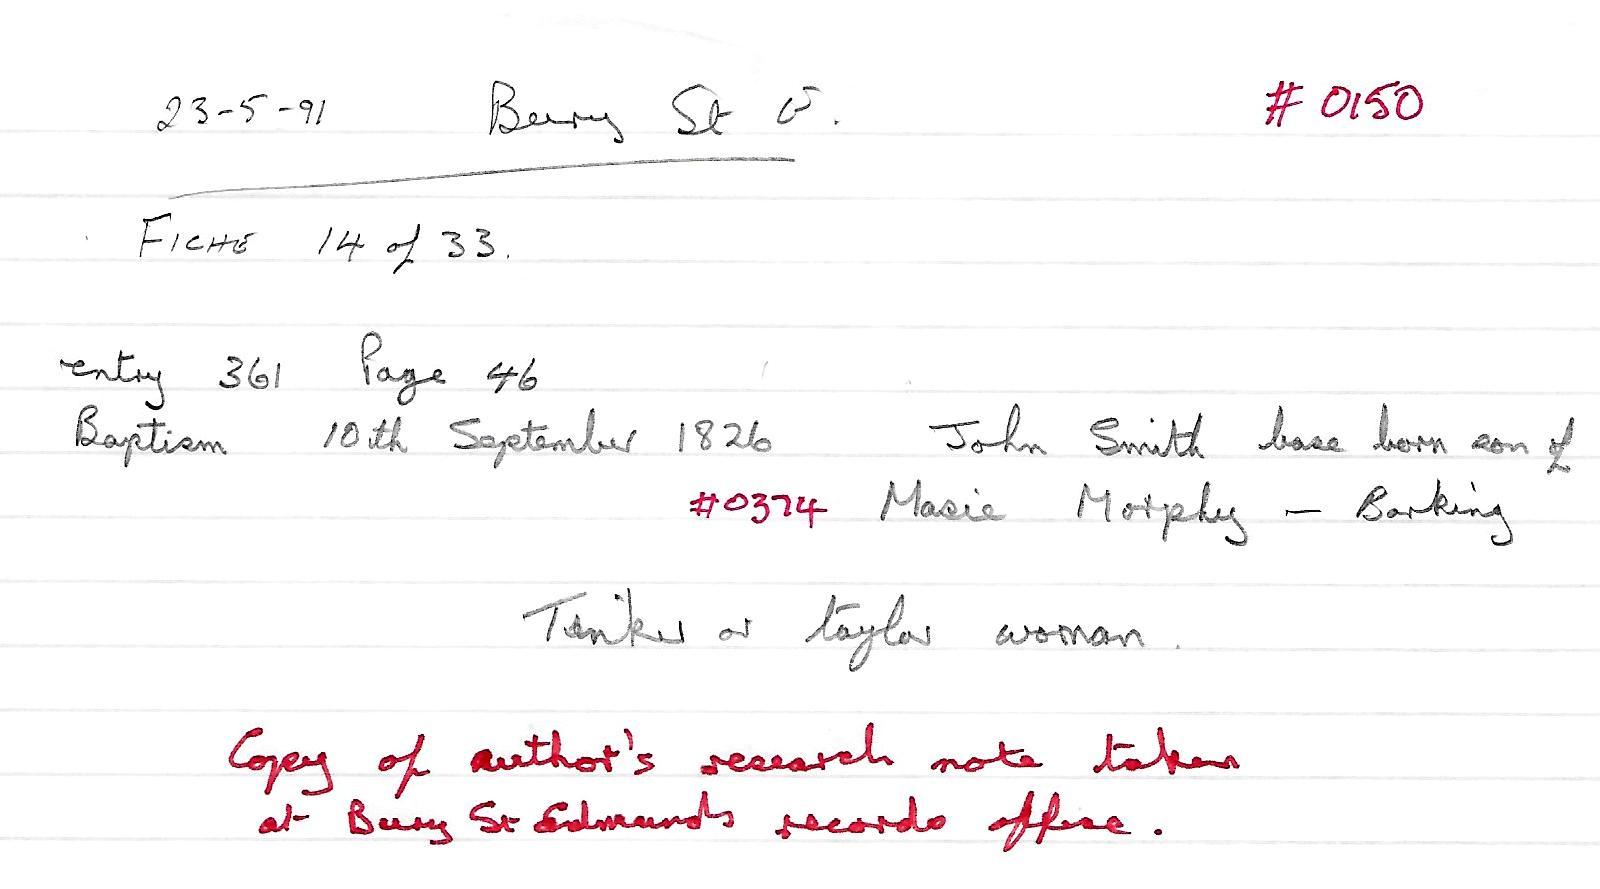 23-5-91 Bury St E. # 0150
FICHE 14 of 33.
entry 361 Page 46
Baptism 10th September 1826 John Smith base born son of
#0374 Masie Morphy – Barking
Tinker or taylor woman.
Copy of author's research note taken
at Bury St Edmunds records office.